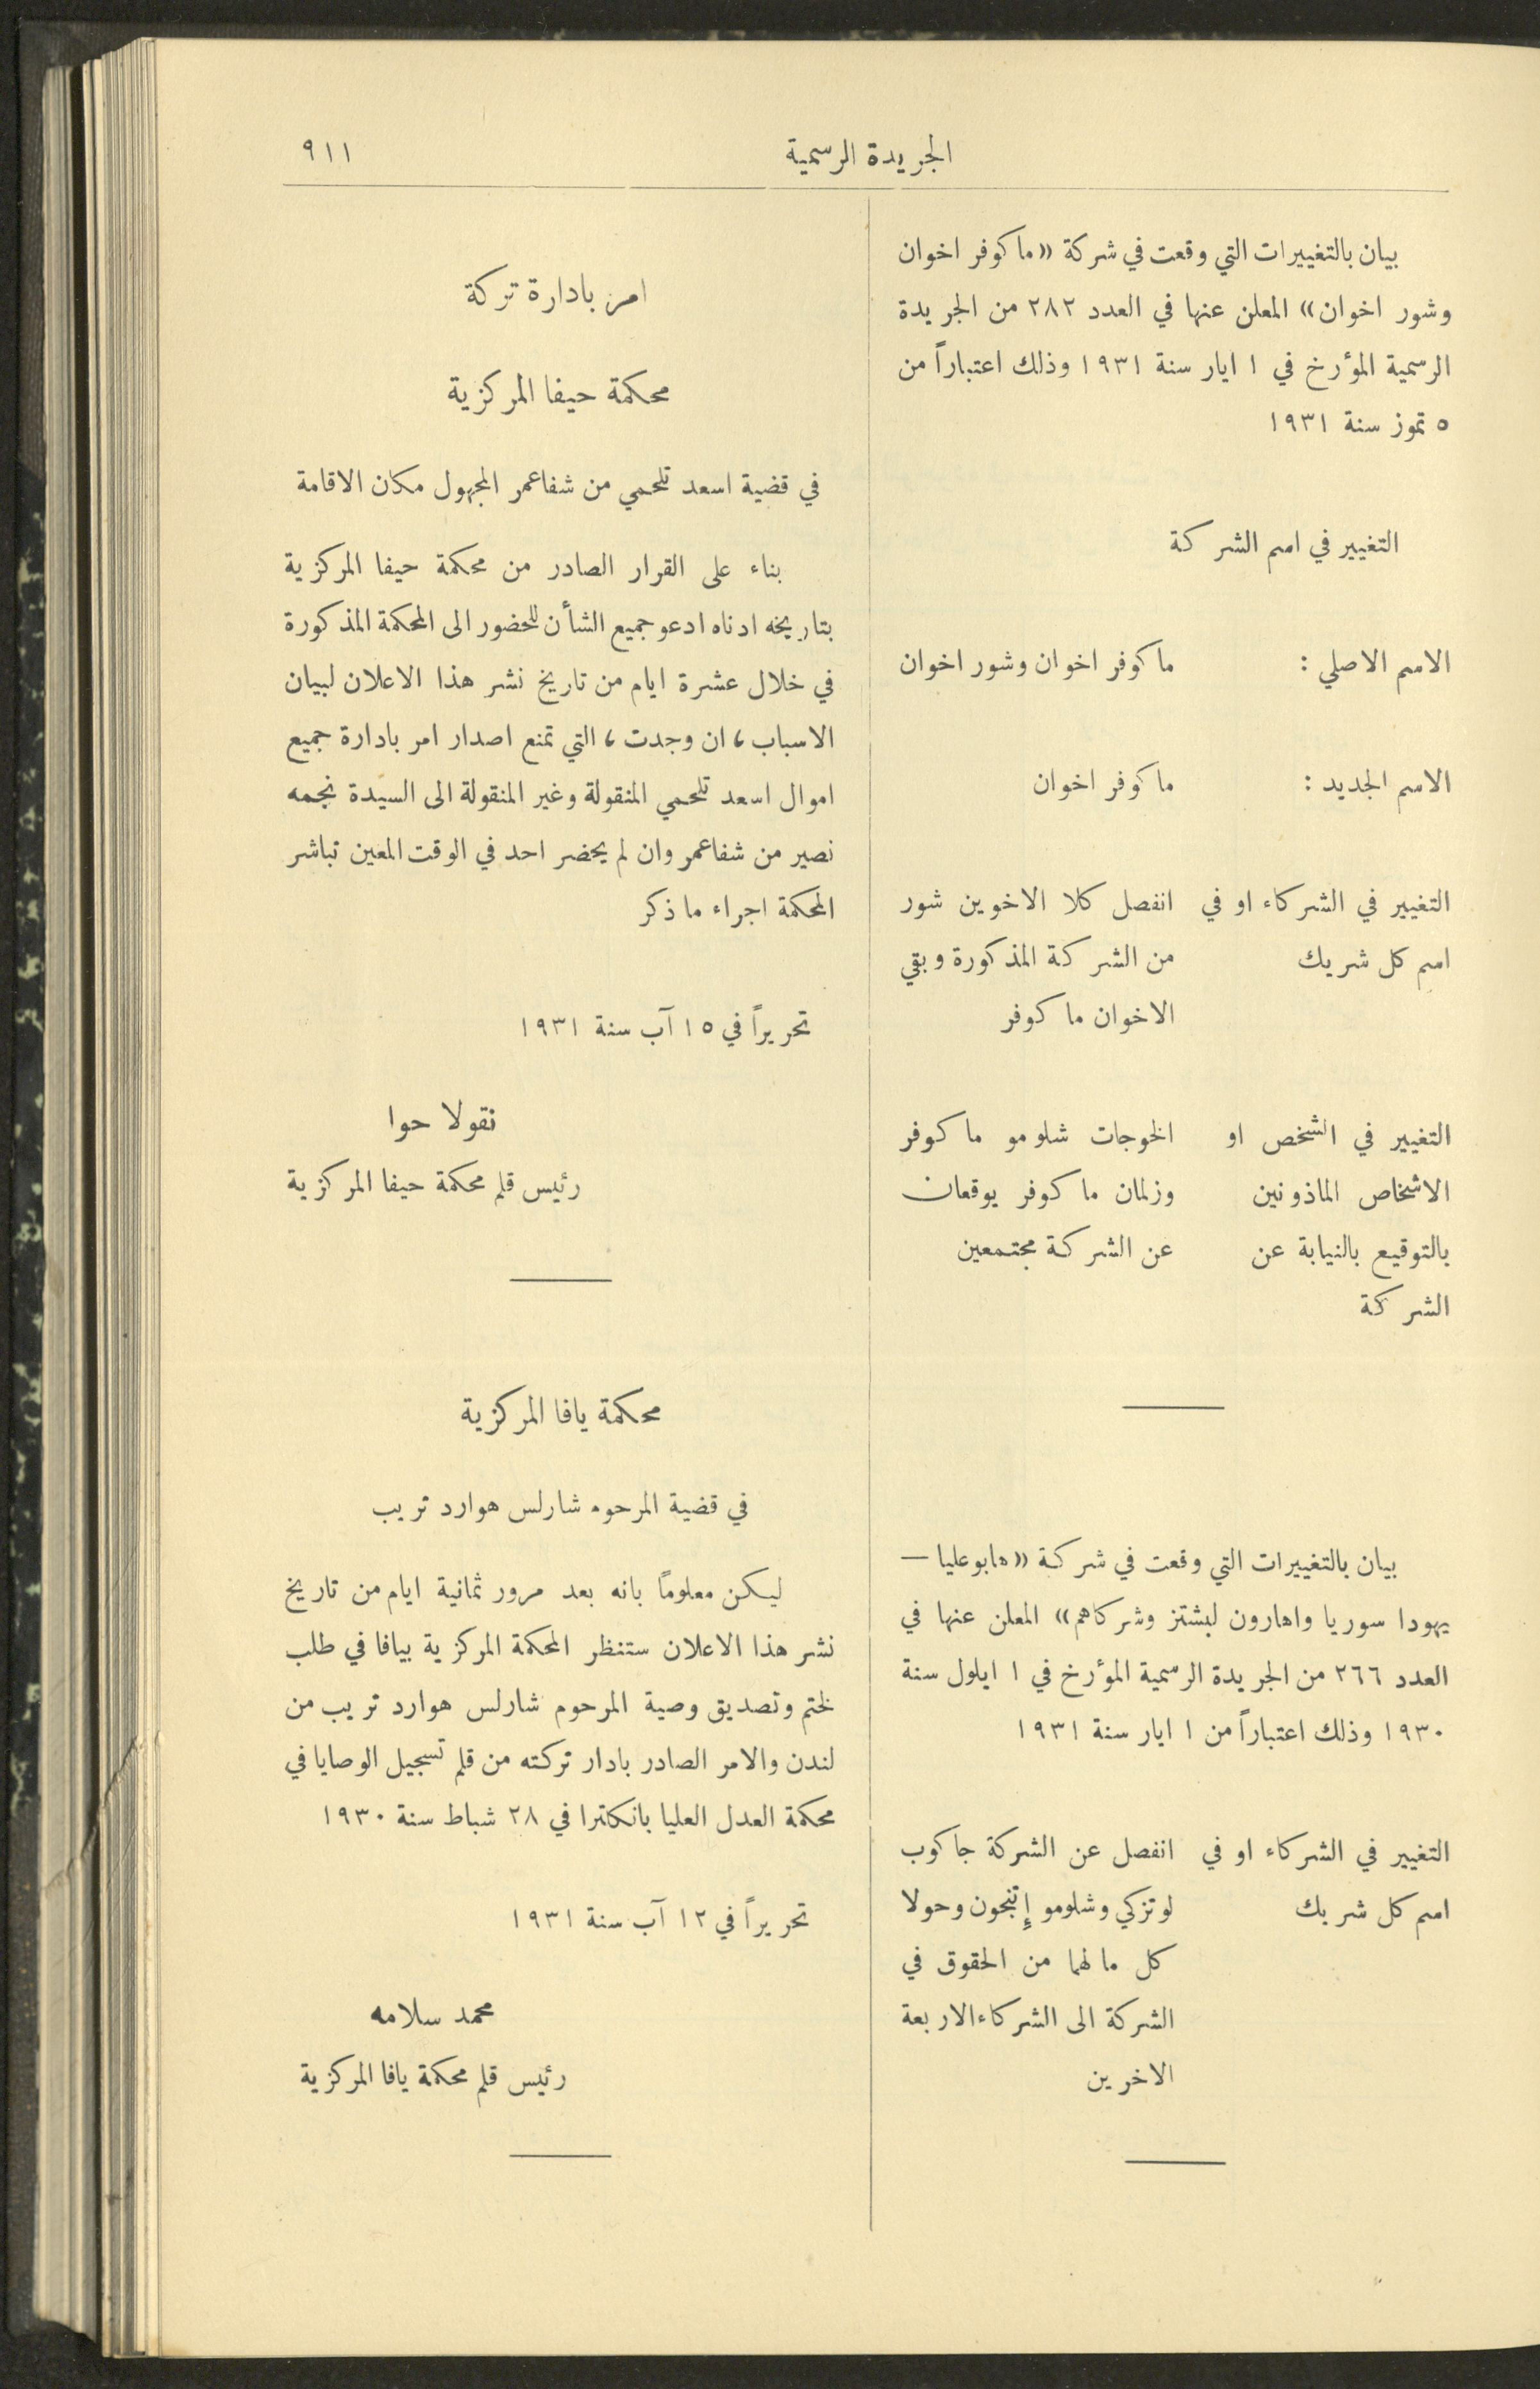 الجريدة الرسمية
٩١١
بيان بالتغييرات التي وقعت في شركة «ماكوفر اخوان
وشور اخوان» المعلن عنها في العدد ٢٨٢ من الجريدة
الرسمية المؤرخ في ١ ايار سنة ١٩٣١ وذلك اعتباراً من
٥ تموز سنة ١٩٣١
التغيير في اسم الشركة
الاسم الاصلي : ماكوفر اخوان وشور اخوان
الاسم الجديد : ماكوفر اخوان
التغيير في الشركاء او في انفصل كلا الاخوين شور
اسم كل شريك من الشركة المذكورة وبقي
الاخوان ماكوفر
التغيير في الشخص او الخوجات شلومو ماكوفر
الاشخاص الماذونين وزلمان ماكوفر يوقعان
بالتوقيع بالنيابة عن عن الشركة مجتمعين
الشركة
بيان بالتغييرات التي وقعت في شركة «هابوعليا —
يهودا سوريا واهارون لبشتز وشركاهم» المعلن عنها في
العدد ٢٦٦ من الجريدة الرسمية المؤرخ في ١ ايلول سنة
١٩٣٠ وذلك اعتباراً من ١ ايار سنة ١٩٣١
التغيير في الشركاء او في انفصل عن الشركة جاكوب
اسم كل شريك لوتزكي وشلومو إتنجون وحولا
كل مالهما من الحقوق في
الشركة الى الشركاء الاربعة
الاخرين
امر بادارة تركة
محكمة حيفا المركزية
في قضية اسعد تلحمي من شفاعمر المجهول مكان الاقامة
بناء على القرار الصادر من محكمة حيفا المركزية
بتاريخه ادناه ادعو جميع الشأن للحضور الى المحكمة المذكورة
في خلال عشرة ايام من تاريخ نشر هذا الاعلان لبيان
الاسباب، ان وجدت، التي تمنع اصدار امر بادارة جميع
اموال اسعد تلحمي المنقولة وغير المنقولة الى السيدة نجمه
نصير من شفاعمر وان لم يحضر احد في الوقت المعين تباشر
المحكمة اجراء ما ذكر
تحريراً في ١٥ آب سنة ١٩٣١
نقولا حوا
رئيس قلم محكمة حيفا المركزية
محكمة يافا المركزية
في قضية المرحوم شارلس هوارد تريب
ليكن معلومًا بانه بعد مرور ثمانية ايام من تاريخ
نشر هذا الاعلان ستنظر المحكمة المركزية بيافا في طلب
لختم وتصديق وصية المرحوم شارلس هوارد تريب من
لندن والامر الصادر بادار تركته من قلم تسجيل الوصايا في
محكمة العدل العليا بانكلترا في ٢٨ شباط سنة ١٩٣٠
تحريراً في ١٢ آب سنة ١٩٣١
محمد سلامه
رئيس قلم محكمة يافا المركزية